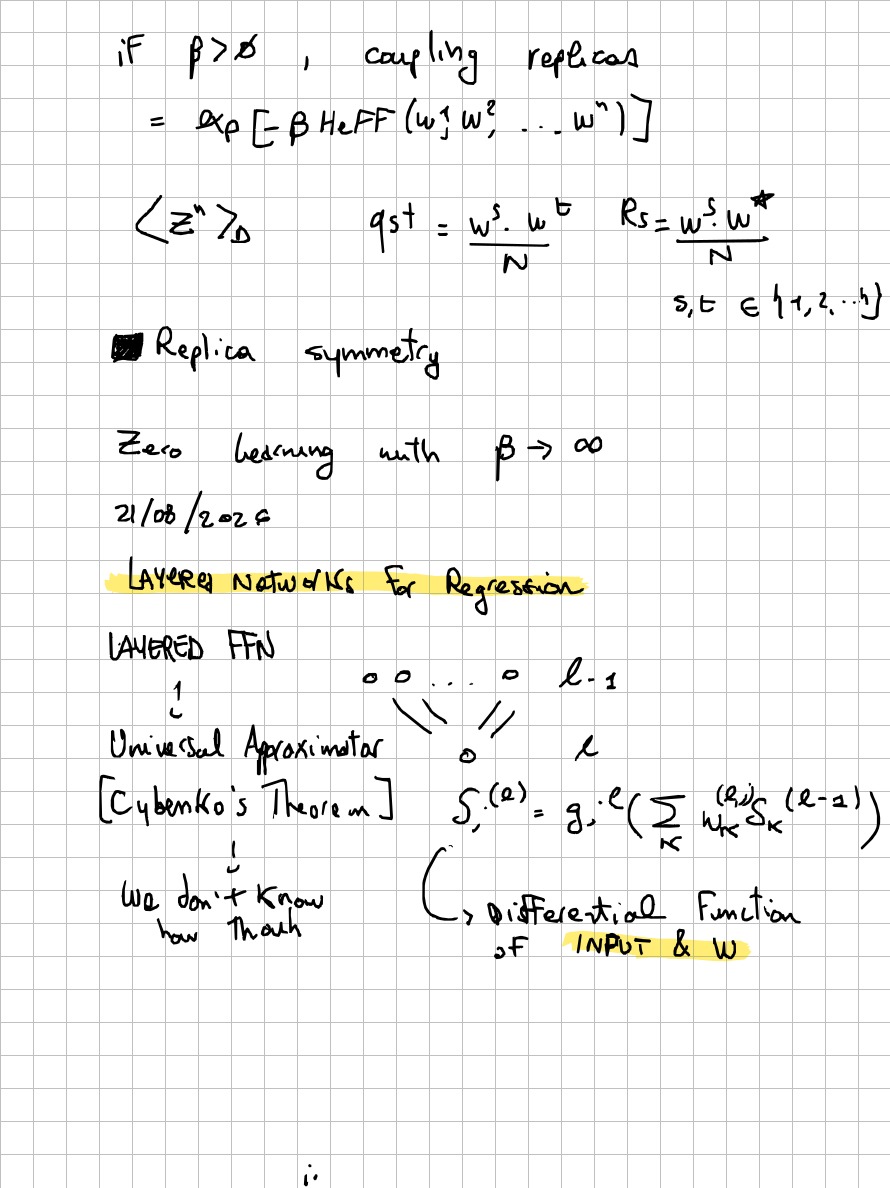 if β>0, coupling replicas
= exp[-β HeFF (w¹, w², ... wⁿ)]
<Zⁿ>_D qst = wˢ · wᵗ / N Rs = wˢ · w* / N
s,t ∈ {1,2,...n}
Replica symmetry
Zero learning with β → ∞
21/08/2026
LAYERED NETWORKS For Regression
LAYERED FFN
o o ... o l-1
Universal Approximator o l
[Cybenko's Theorem] S_j^(l) = g_j^l (Σ_K w_K^(l,j) S_K^(l-1))
We don't Know
how
→ Differential Function
oF INPUT & W